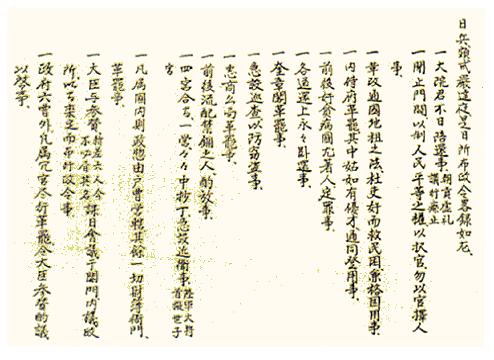 日兵頗戒嚴達夜是日所布政令畧錄如左
一大院君不日陪還事 朝貢虛礼議行廢止
一閉止門閥以制人民平等之權以択官勿以官擇人
事
一革改通國地租之法杜吏奸而救民困兼裕國用事
一內侍府革罷其中如有優才通同登用事
一前後奸貪病國尤著人定罪事
一各道還上永々臥還事
一奎章閣革罷事
一急設巡查以防窃盜事
一惠商公局革罷事
一前後流配禁錮之人酌放事
一四営合為一営々中抄丁急設近衛事 陸軍大將首擬世子
宮
一凡屬國內財政總由戶曹管轄其餘一切財簿衙門
革罷事
一大臣与參贊 新差六人今不必書其名 課日會議于閤門內議政
所以為稟定而布行政令事
一政府六曹外凡屬冗官盡行革罷令大臣參贊酌議
以啓事